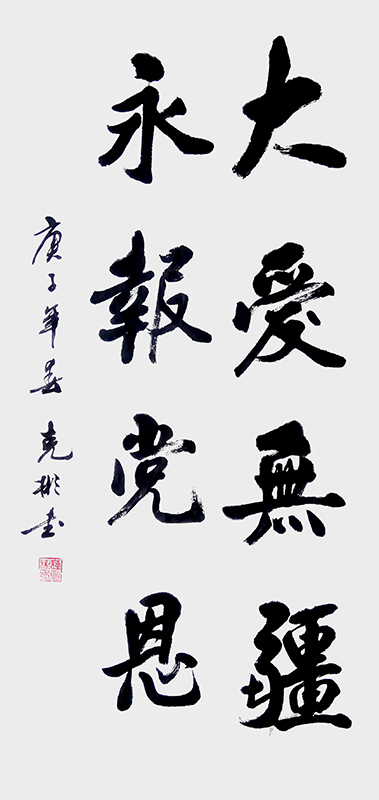 大愛無疆
永報党恩
庚子年春克彬书